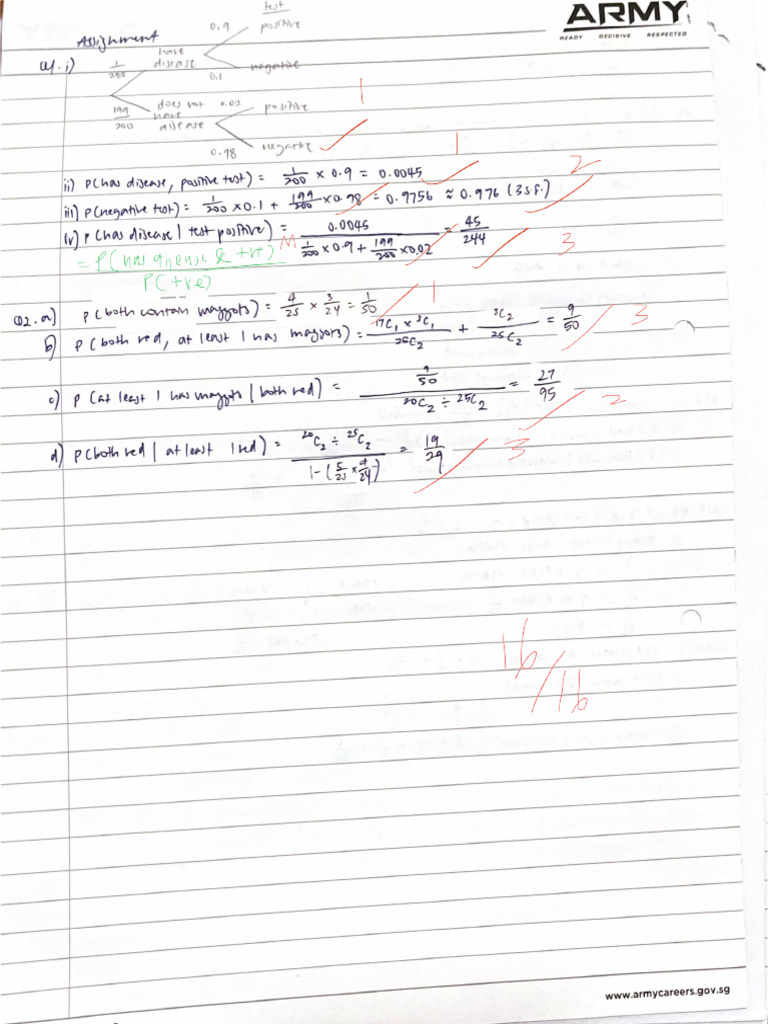 ARMY
READY DECISIVE RESPECTED
Assignment
test
Q1. i) 1/200 have disease 0.9 positive
0.1 negative
199/200 does not have disease 0.02 positive
0.98 negative
1
ii) P(has disease, positive test) = 1/200 × 0.9 = 0.0045 1
iii) P(negative test) = 1/200 × 0.1 + 199/200 × 0.98 = 0.9756 ≈ 0.976 (3sf.) 2
iv) P(has disease | test positive) = 0.0045 / (1/200 × 0.9 + 199/200 × 0.02) = 45/244 3
M
= P(has disease & +ve) / P(+ve)
Q2. a) P(both contain maggots) = 4/25 × 3/24 = 1/50 1
b) P(both red, at least 1 has maggots) = (17C1 × 3C1) / 25C2 + 3C2 / 25C2 = 9/50 3
c) P(at least 1 has maggots | both red) = (9/50) / (20C2 ÷ 25C2) = 27/95 2
d) P(both red | at least 1 red) = (20C2 ÷ 25C2) / (1 - (5/25 × 4/24)) = 19/29 3
16/16
www.armycareers.gov.sg